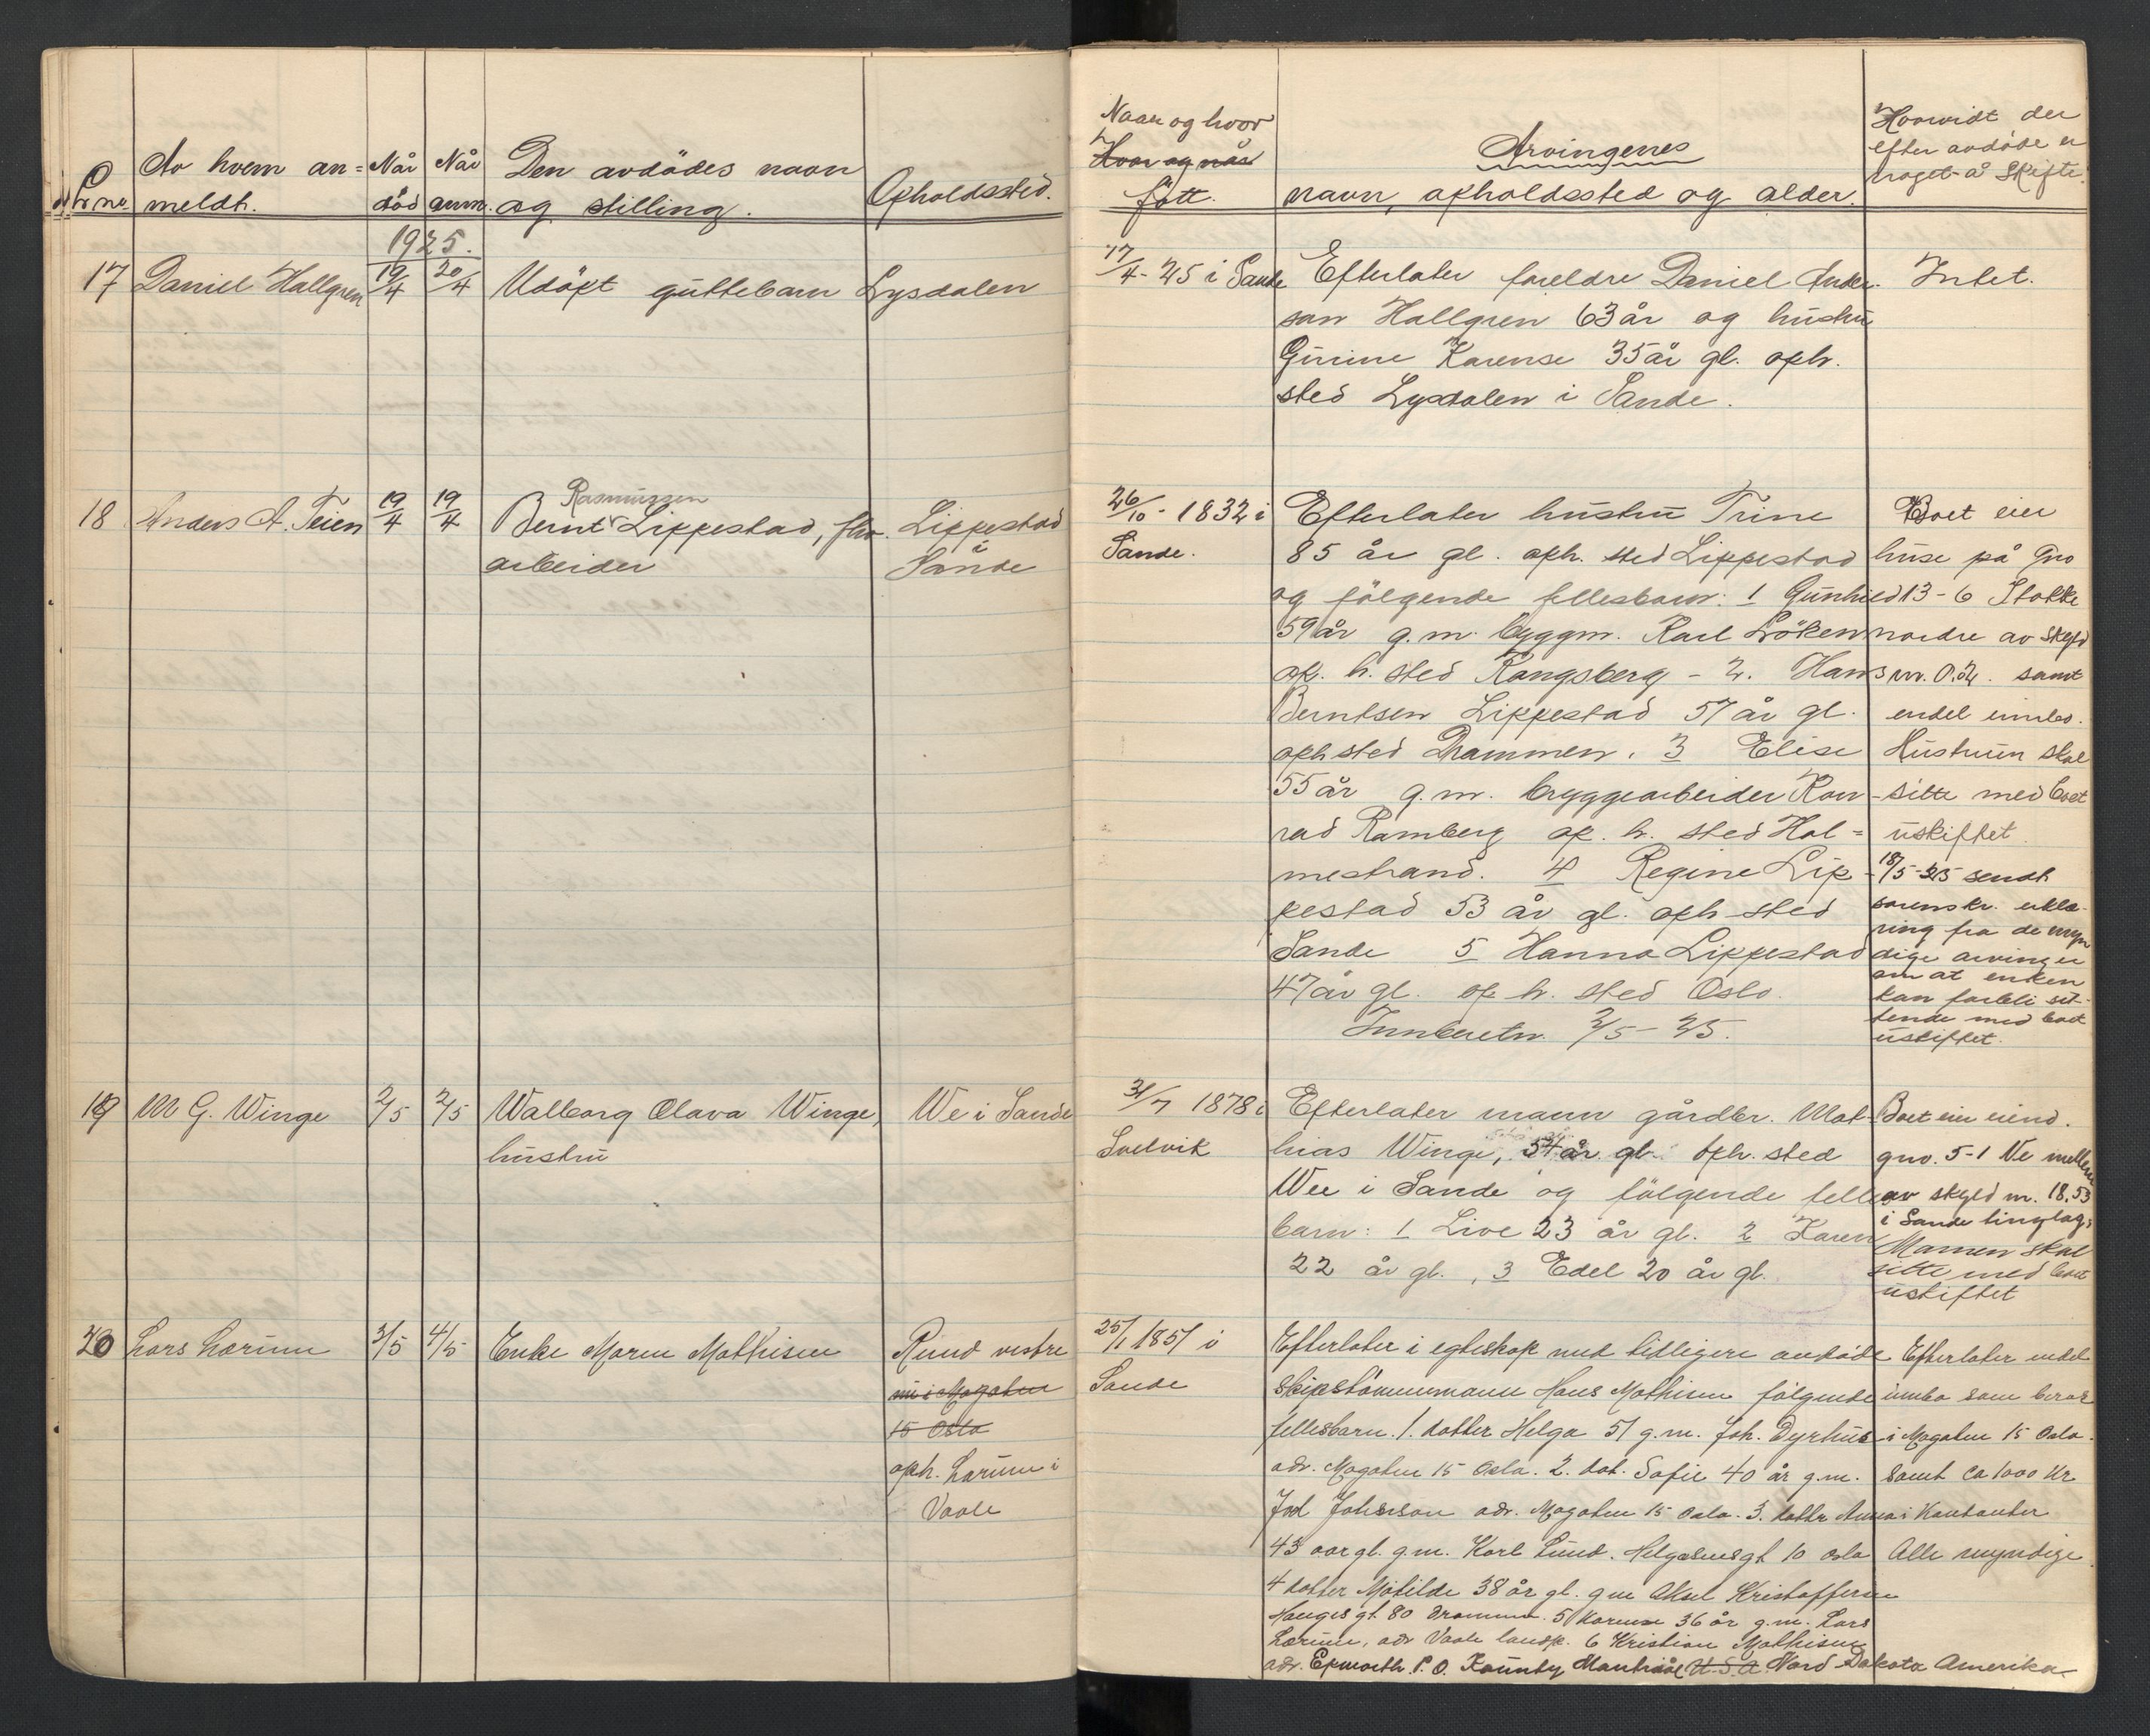 Lb. no.
Av hvem an=
meldt.
Når
död
Når
anm.
Den avdödes navn
og stilling.
Opholdssted.
1925.
17
Daniel Hallgren
19/4
20/4
Udöpt guttebarn
Lysdalen
18
Anders A. Teien
19/4
19/4
Rasmussen
Bernt Lippestad, fhv.
arbeider
Lippestad
i
Sande
19
M G. Winge
2/5
2/5
Walborg Olava Winge,
hustru
We i Sande
20
Lars Lærum
3/5
4/5
Enke Maren Mathisen
Rund vestre
nu i Mogaten
15 Oslo
oph. Lærum i
Vaale
Naar og hvor
Hvor og når
fött.
Arvingenes
navn, opholdssted og alder.
Hvorvidt der
efter avdöde er
noget å skifte.
17/4-25 i Sande
Efterlater foreldre Daniel Ander-
son Hallgren 63 år og hustru
Gurine Karense 35 år gl. oph.
sted Lysdalen i Sande.
Intet.
26/10-1832 i
Sande.
Efterlater hustru Trine
85 år gl. oph. sted Lippestad
og fölgende fellesbarn: 1 Gunhild
59 år g.m. byggm. Karl Löken
op. h. sted Kongsberg - 2. Hans
Berntsen Lippestad 57 år gl.
oph sted Drammen. 3 Elise
55 år g.m. bryggearbeider Kon-
rad Ramberg op. h. sted Hol=
mestrand. 4 Regine Lip-
pestad 53 år gl. oph-sted
Sande 5 Hanna Lippestad
47 år gl. op h. sted Oslo.
Innberetn. 2/5-25.
Boet eier
huse på gno
13-6 Stokke
nordre av skyld
m. 0.02. samt
endel innbo.
Hustruen skal
sitte med boet
uskiftet.
18/5-25 sendt
sorenskr. erklæ-
ring fra de myn
dige arvinger
om at enken
kan forbli sit-
tende med boet
uskiftet.
31/7 1878 i
Svelvik
Efterlater mann gårdbr. Mat-
hias Winge, 54 år gl. oph. sted
Wee i Sande og fölgende felles
barn: 1 Live 23 år gl. 2 Karen
22 år gl., 3 Edel 20 år gl.
Boet eier eiend.
gno. 5-1 Ve mellem
av skyld m. 18.53
i Sande tinglag.
Mannen skal
sitte med boet
uskiftet
25/1 1851 i
Sande
Efterlater i egteskap med tidligere avdöde
skipstömmermann Hans Mathisen fölgende
fellesbarn. 1. datter Helga 51 g.m. Joh. Dyrhus
adr. Mogaten 15 Oslo. 2. dat. Sofie 40 år g.m.
Joh Johnson adr. Mogaten 15 Oslo. 3. datter Anna
43 aar gl. g.m. Karl Lund. Helgesensgt 10 Oslo
4 datter Matilde 38 år gl. g m Aksel Kristoffersen
Hauges gt. 80 Drammen. 5 Karense 36 år g.m. Lars
Lærum, adr Vaale landsk. 6 Kristian Mathisen
adr. Epworth P.O. Kaunty Mantraal U.S.A. Nord Dakota Amerika
Efterlater endel
innbo som beror
i Mogaten 15 Oslo.
samt ca 1000 kr
i kontanter
Alle myndige.